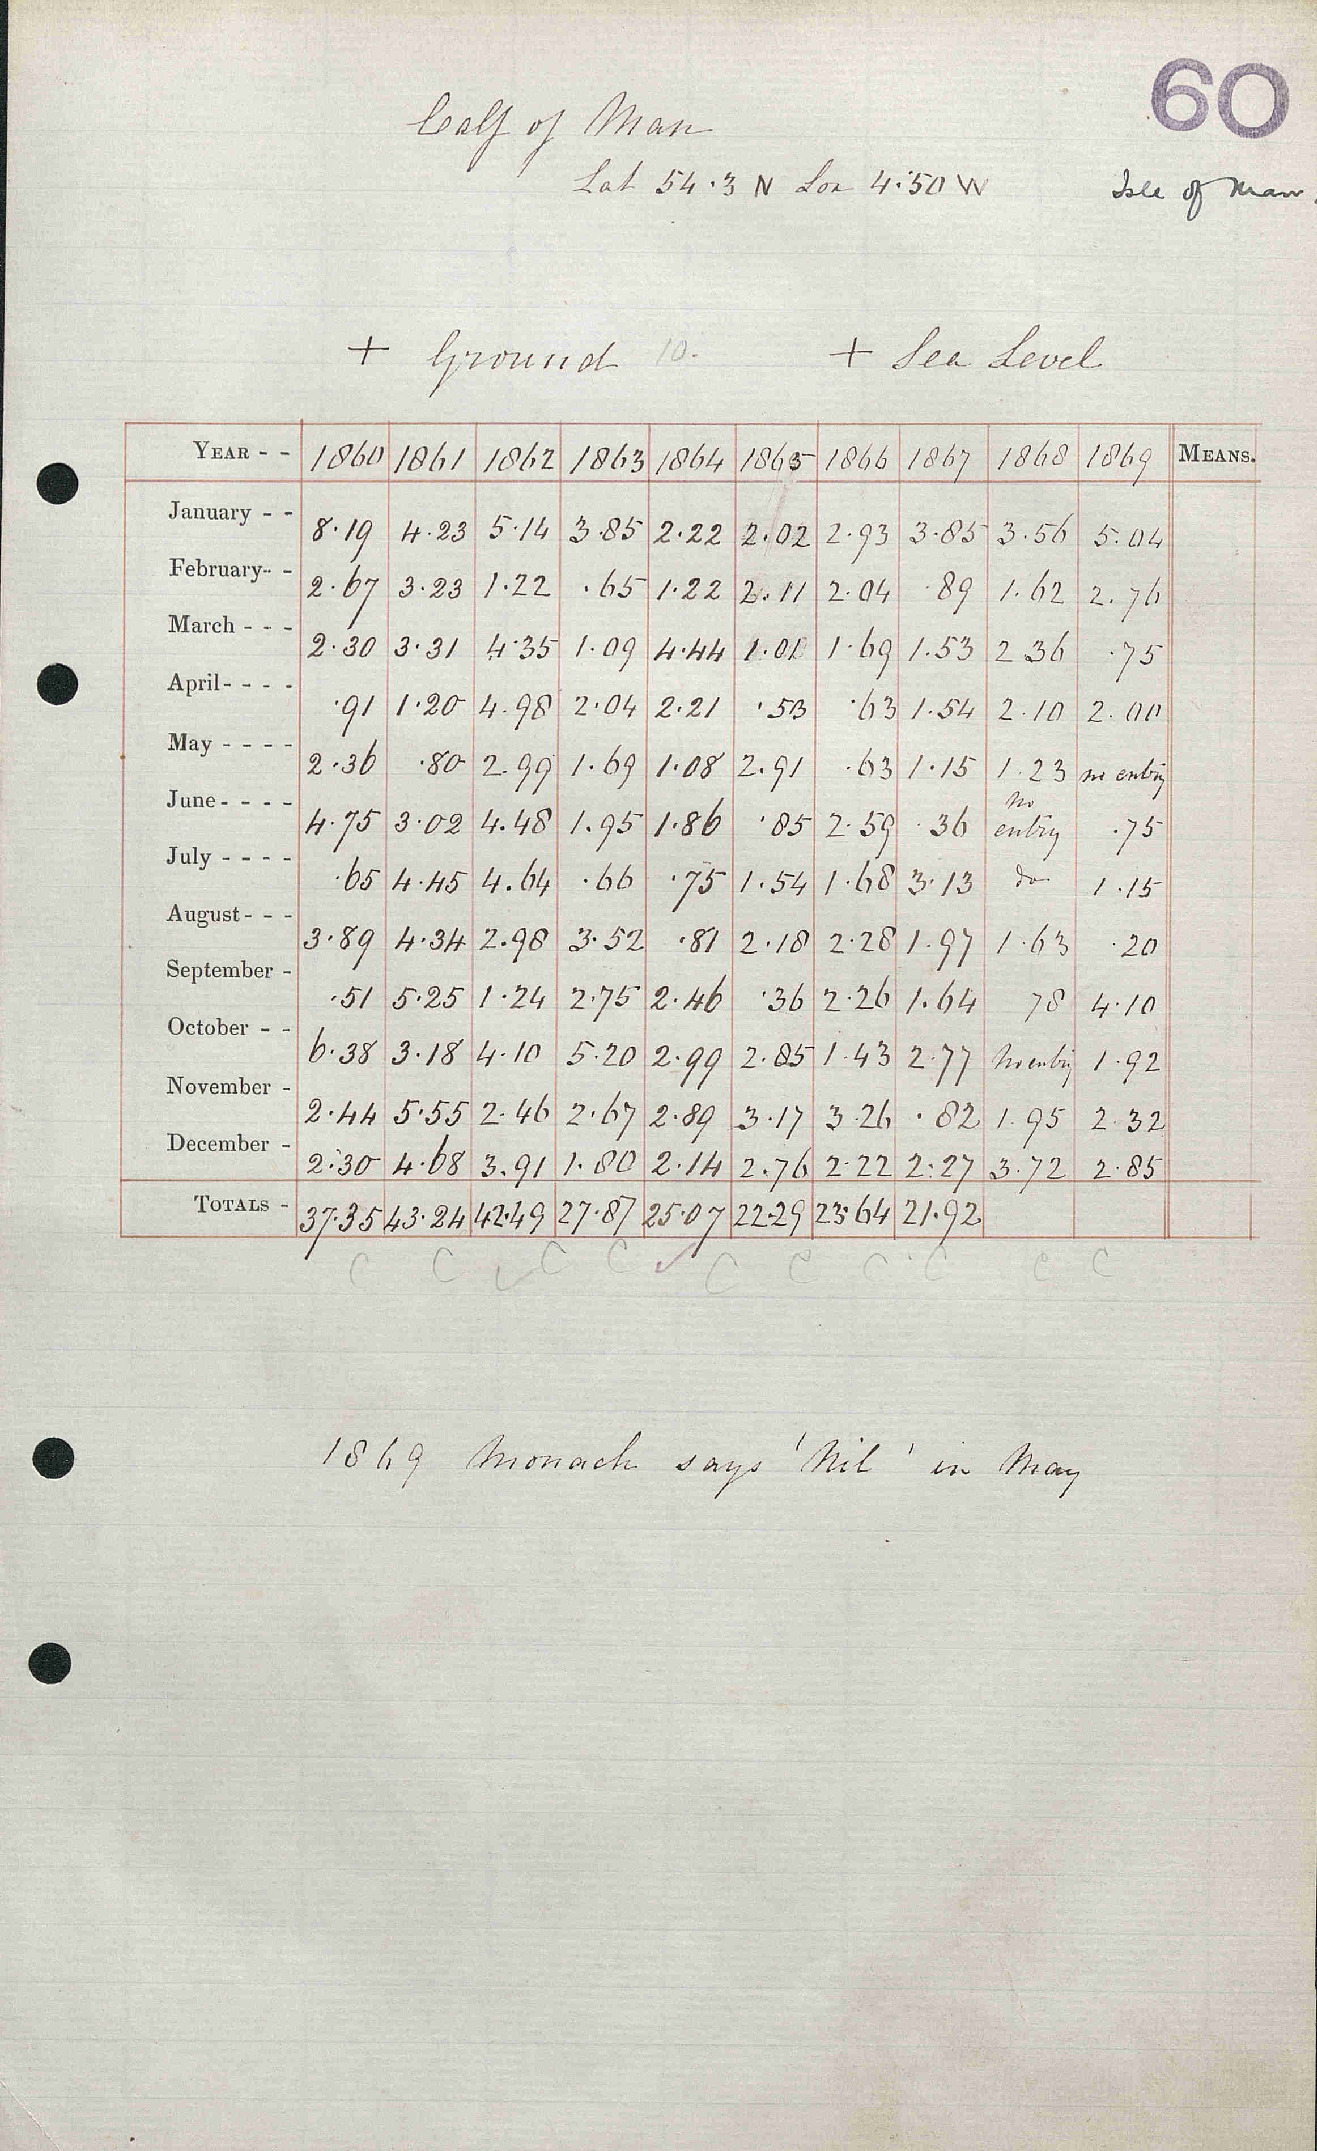 60
Calf of Man
Lat 54·3 N Lon 4·50 W
Isle of Man.
+ Ground 10. + Sea Level
YEAR - - 1860 1861 1862 1863 1864 1865 1866 1867 1868 1869 MEANS.
January - - 8·19 4·23 5·14 3·85 2·22 2·02 2·93 3·85 3·56 5·04
February- - 2·67 3·23 1·22 ·65 1·22 2·11 2·04 ·89 1·62 2·76
March - - - 2·30 3·31 4·35 1·09 4·44 1·01 1·69 1·53 2 36 ·75
April- - - - ·91 1·20 4·98 2·04 2·21 ·53 ·63 1·54 2·10 2·00
May - - - - 2·36 ·80 2·99 1·69 1·08 2·91 ·63 1·15 1·23 no entry
June- - - - 4·75 3·02 4·48 1·95 1·86 ·85 2·59 ·36 no entry ·75
July - - - - ·65 4·45 4·64 ·66 ·75 1·54 1·68 3·13 do 1·15
August- - - 3·89 4·34 2·98 3·52 ·81 2·18 2·28 1·97 1·63 ·20
September - ·51 5·25 1·24 2·75 2·46 ·36 2·26 1·64 78 4·10
October - - 6·38 3·18 4·10 5·20 2·99 2·85 1·43 2·77 No entry 1·92
November - 2·44 5·55 2·46 2·67 2·89 3·17 3·26 ·82 1·95 2·32
December - 2·30 4·68 3·91 1·80 2·14 2·76 2·22 2·27 3·72 2·85
TOTALS - 37·35 43·24 42·49 27·87 25·07 22·29 23·64 21·92
C C C C C C C C C C
1869 Monach says 'Nil' in May